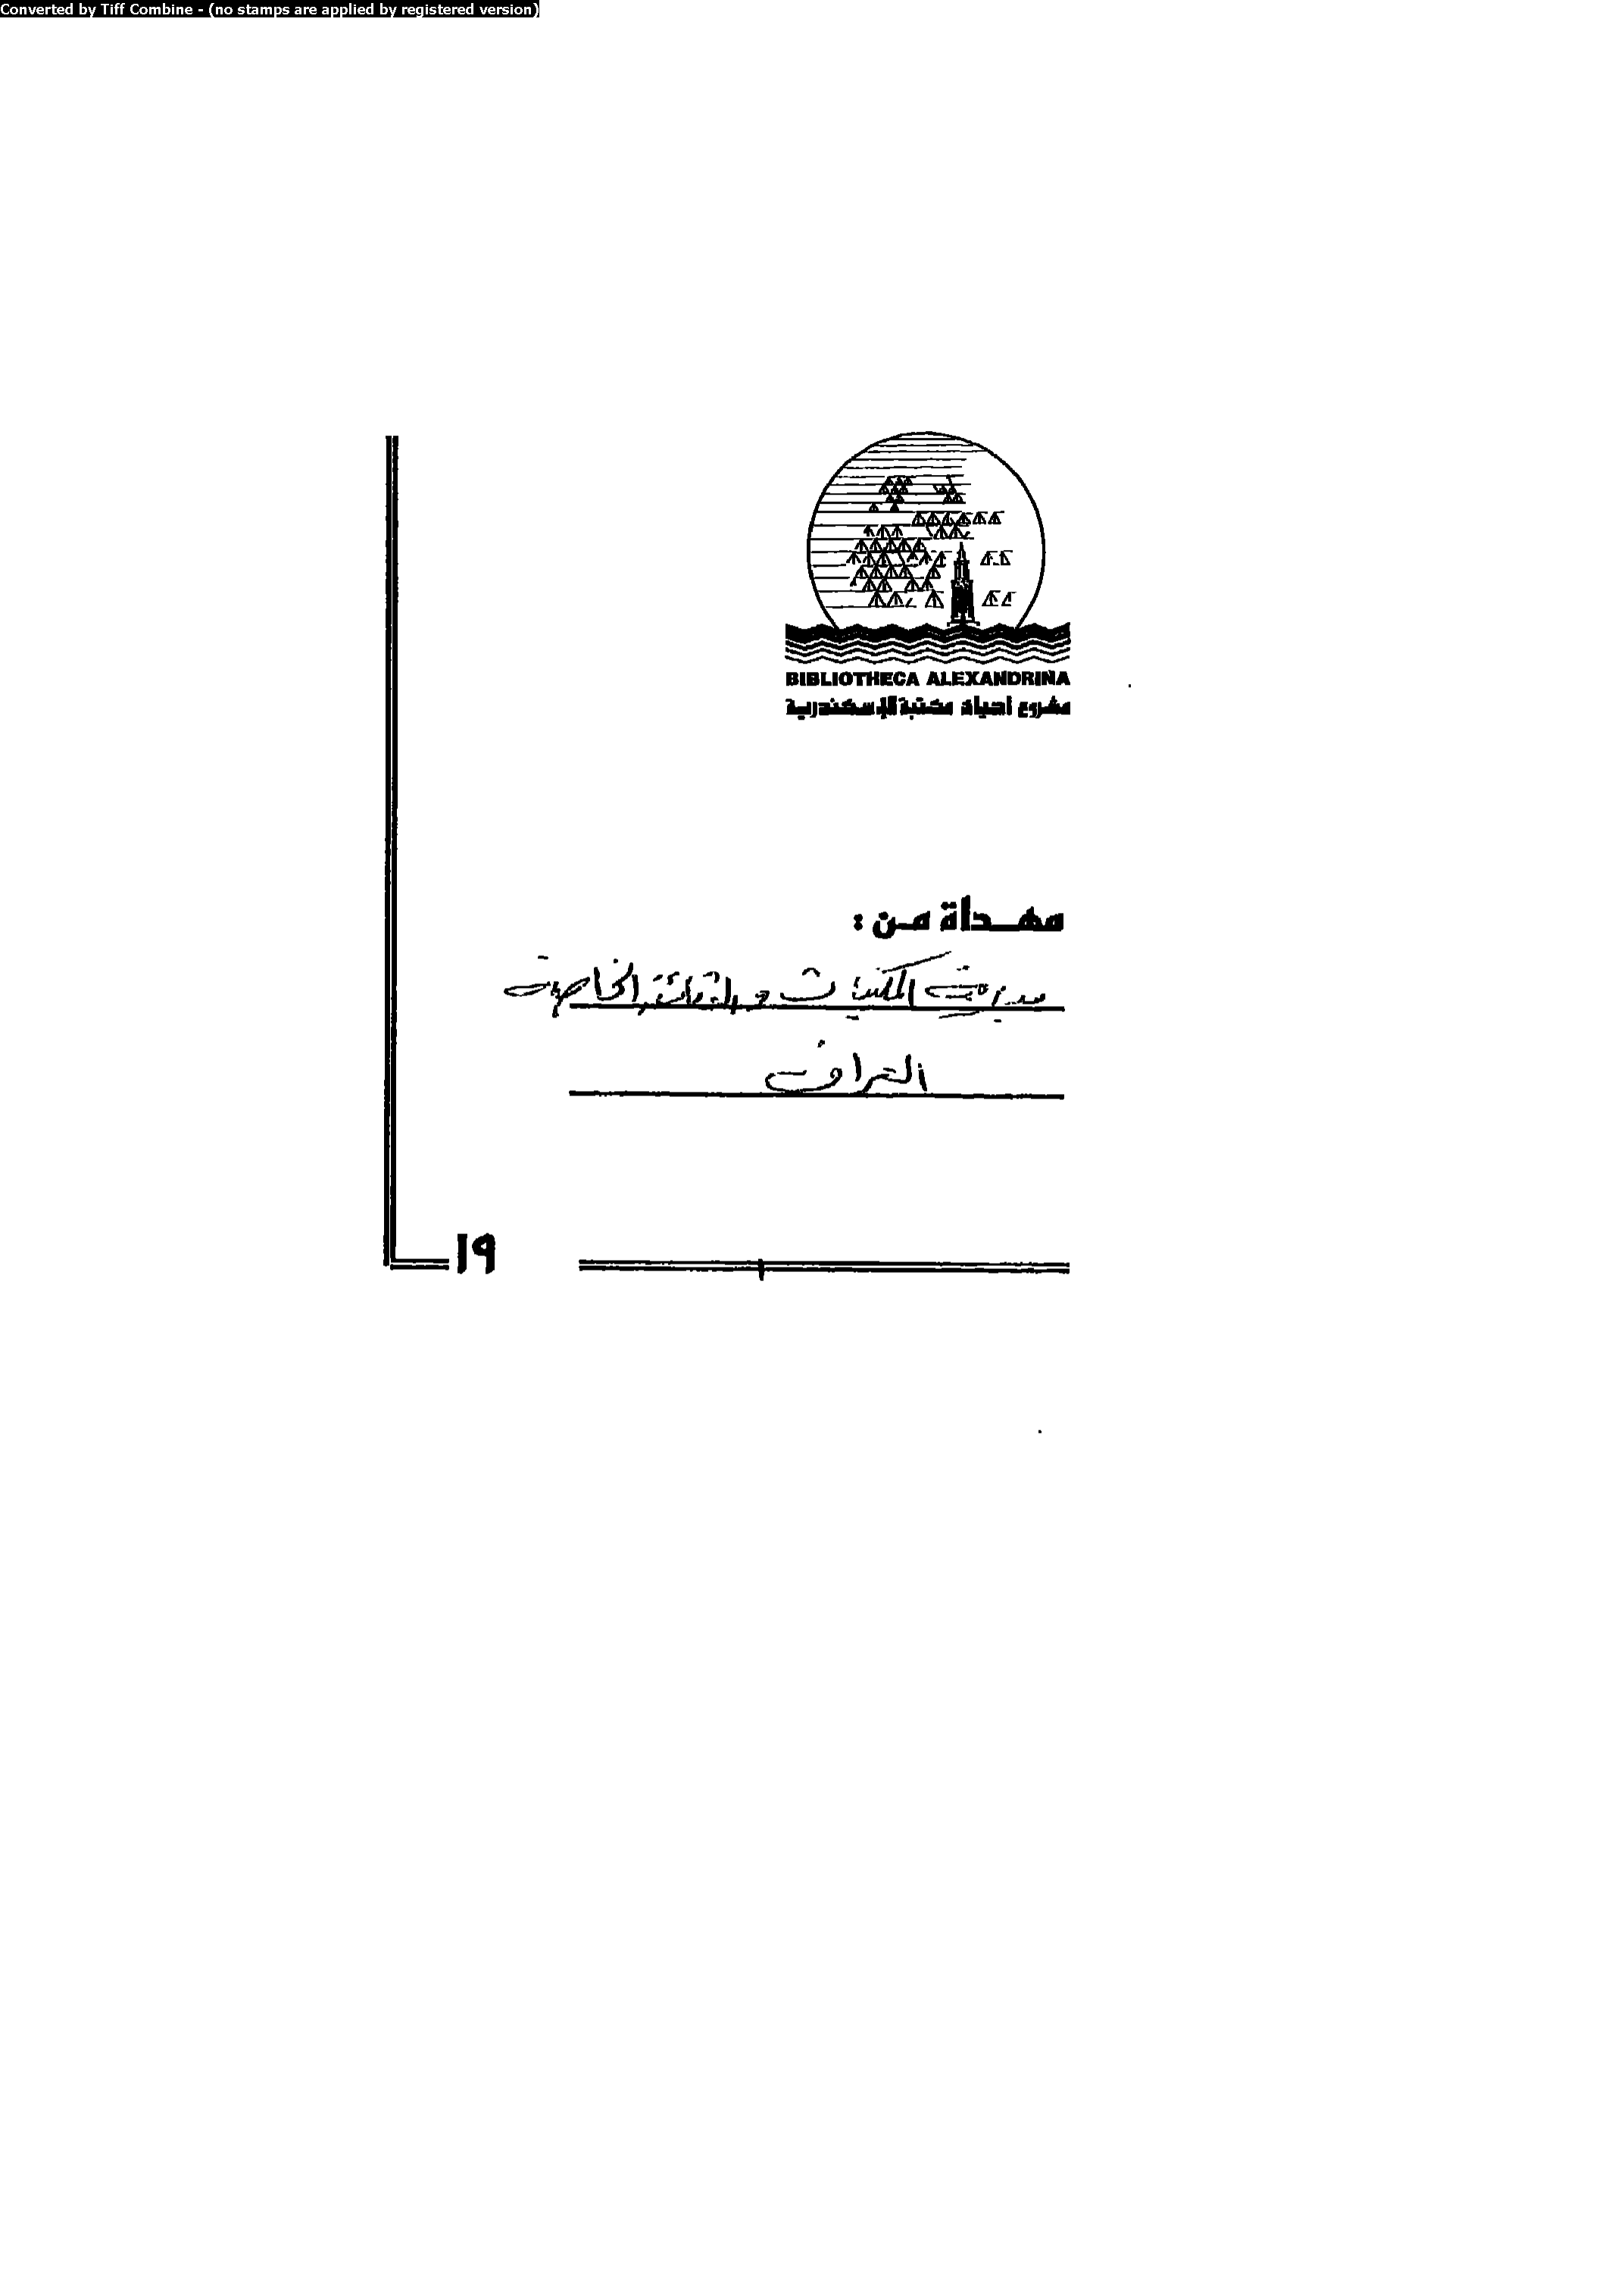 Converted by Tiff Combine - (no stamps are applied by registered version)
BIBLIOTHECA ALEXANDRINA
مشروع احياء مكتبة الإسكندرية
مهداة من :
المكتبات و الخاصة
العراق
١٩